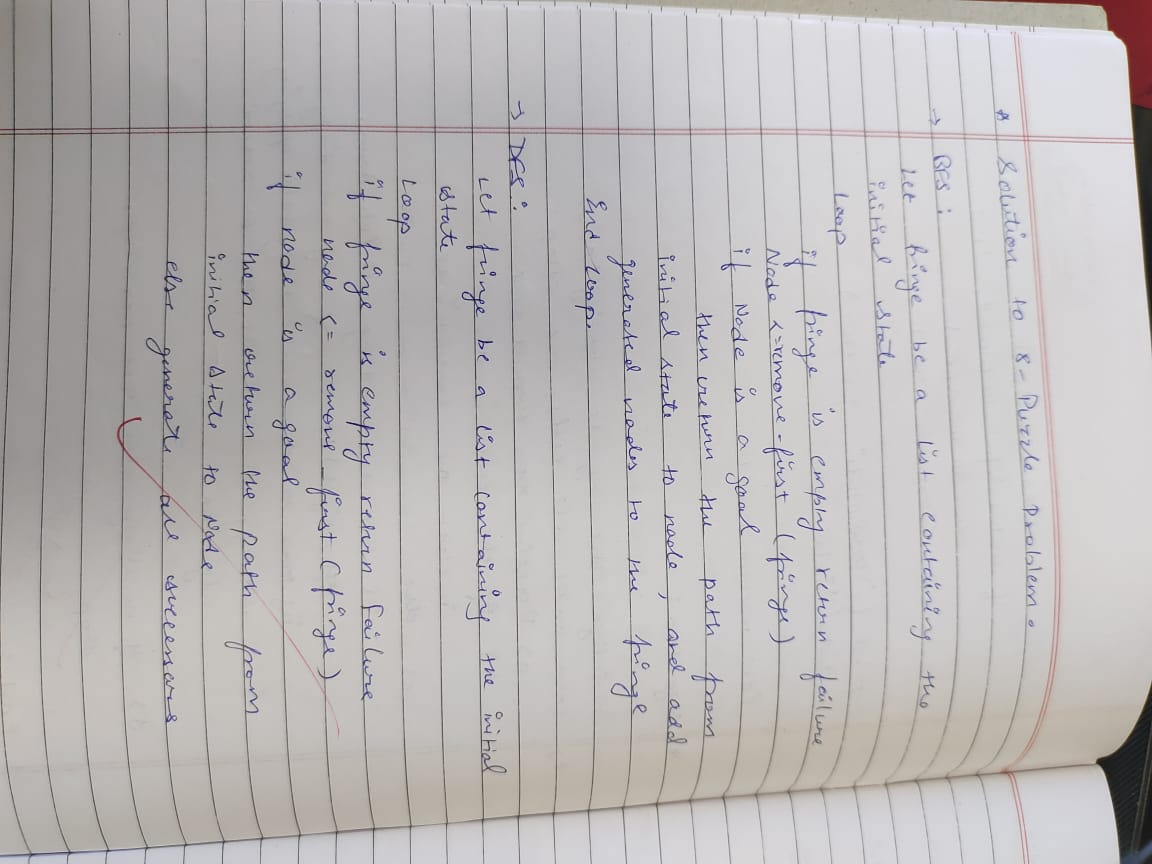 * Solution to 8-Puzzle Problem.
→ BFS:
Let fringe be a list containing the
initial state
Loop
if fringe is empty return failure
Node <= remove-first (fringe)
if Node is a goal
then return the path from
initial state to node, and add
generated nodes to the fringe
End Loop.
→ DFS:
Let fringe be a list containing the initial
state
Loop
if fringe is empty return failure
node <= remove-first (fringe)
if node is a goal
then return the path from
initial state to Node
else generate all successors